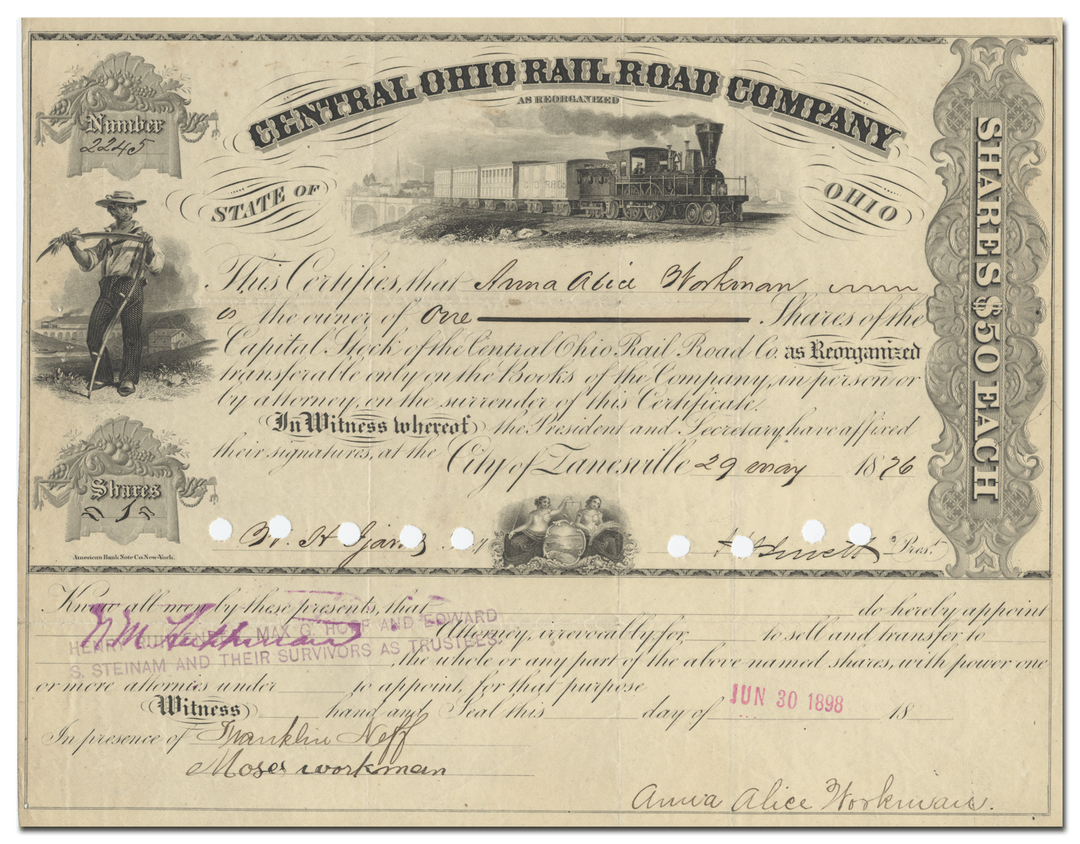 CENTRAL OHIO RAIL ROAD COMPANY
AS REORGANIZED
Number
2245
STATE OF OHIO
SHARES $50 EACH
This Certifies, that Anna Alice Workman
is the owner of One Shares of the
Capital Stock of the Central Ohio Rail Road Co. as Reorganized
transferable only on the Books of the Company, in person or
by attorney, on the surrender of this Certificate.
In Witness whereof the President and Secretary, have affixed
their signatures, at the City of Zanesville 29 may 1876
Shares
1
American Bank Note Co. New-York.
W. H.
Pres.t
Know all men by these presents, that do hereby appoint
HENRY MAX G. AND EDWARD
Attorney, irrevocably for to sell and transfer to
S. STEINAM AND THEIR SURVIVORS AS TRUSTEES.
the whole or any part of the above named shares, with power one
or more attornies under to appoint, for that purpose
JUN 30 1898
Witness hand and Seal this day of 18
In presence of Franklin Neff
Moses workman
Anna Alice Workman.